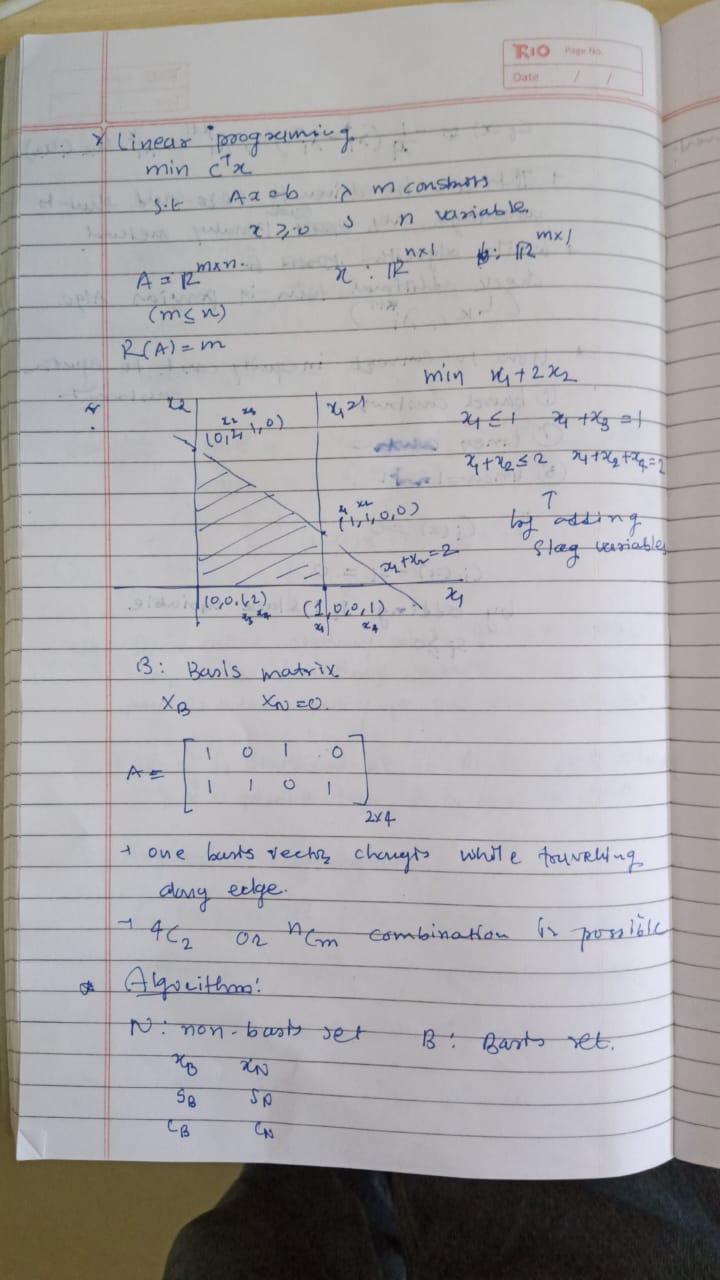 TRIO Page No.
Date / /
* Linear programing.
min cᵀx
s.t Ax=b } m constrors
x ≥ 0 } n variable
A = ℝ^{m×n} x : ℝ^{n×1} b : ℝ^{m×1}
(m ≤ n)
R(A) = m
min x₁ + 2x₂
x₂ x₁=1
x₂ x₃
(0,2,1,0)
x₁ ≤ 1 x₁ + x₃ = 1
x₁+x₂ ≤ 2 x₁+x₂+x₄=2
x₁ x₂
(1,1,0,0)
↑
by adding
slag variables
x₁+x₂=2
x₁
(0,0,1,2)
x₃ x₄
(1,0,0,1)
x₁ x₄
B : Basis matrix
X_B X_N = 0.
A = [ 1 0 1 0
1 1 0 1 ] 2×4
→ one basis vector changes while traveling
along edge.
→ ⁴C₂ or ⁿCₘ combination is possible
* Algorithm:
N : non-basis set B : Basis set.
x_B x_N
S_B S_N
C_B C_N